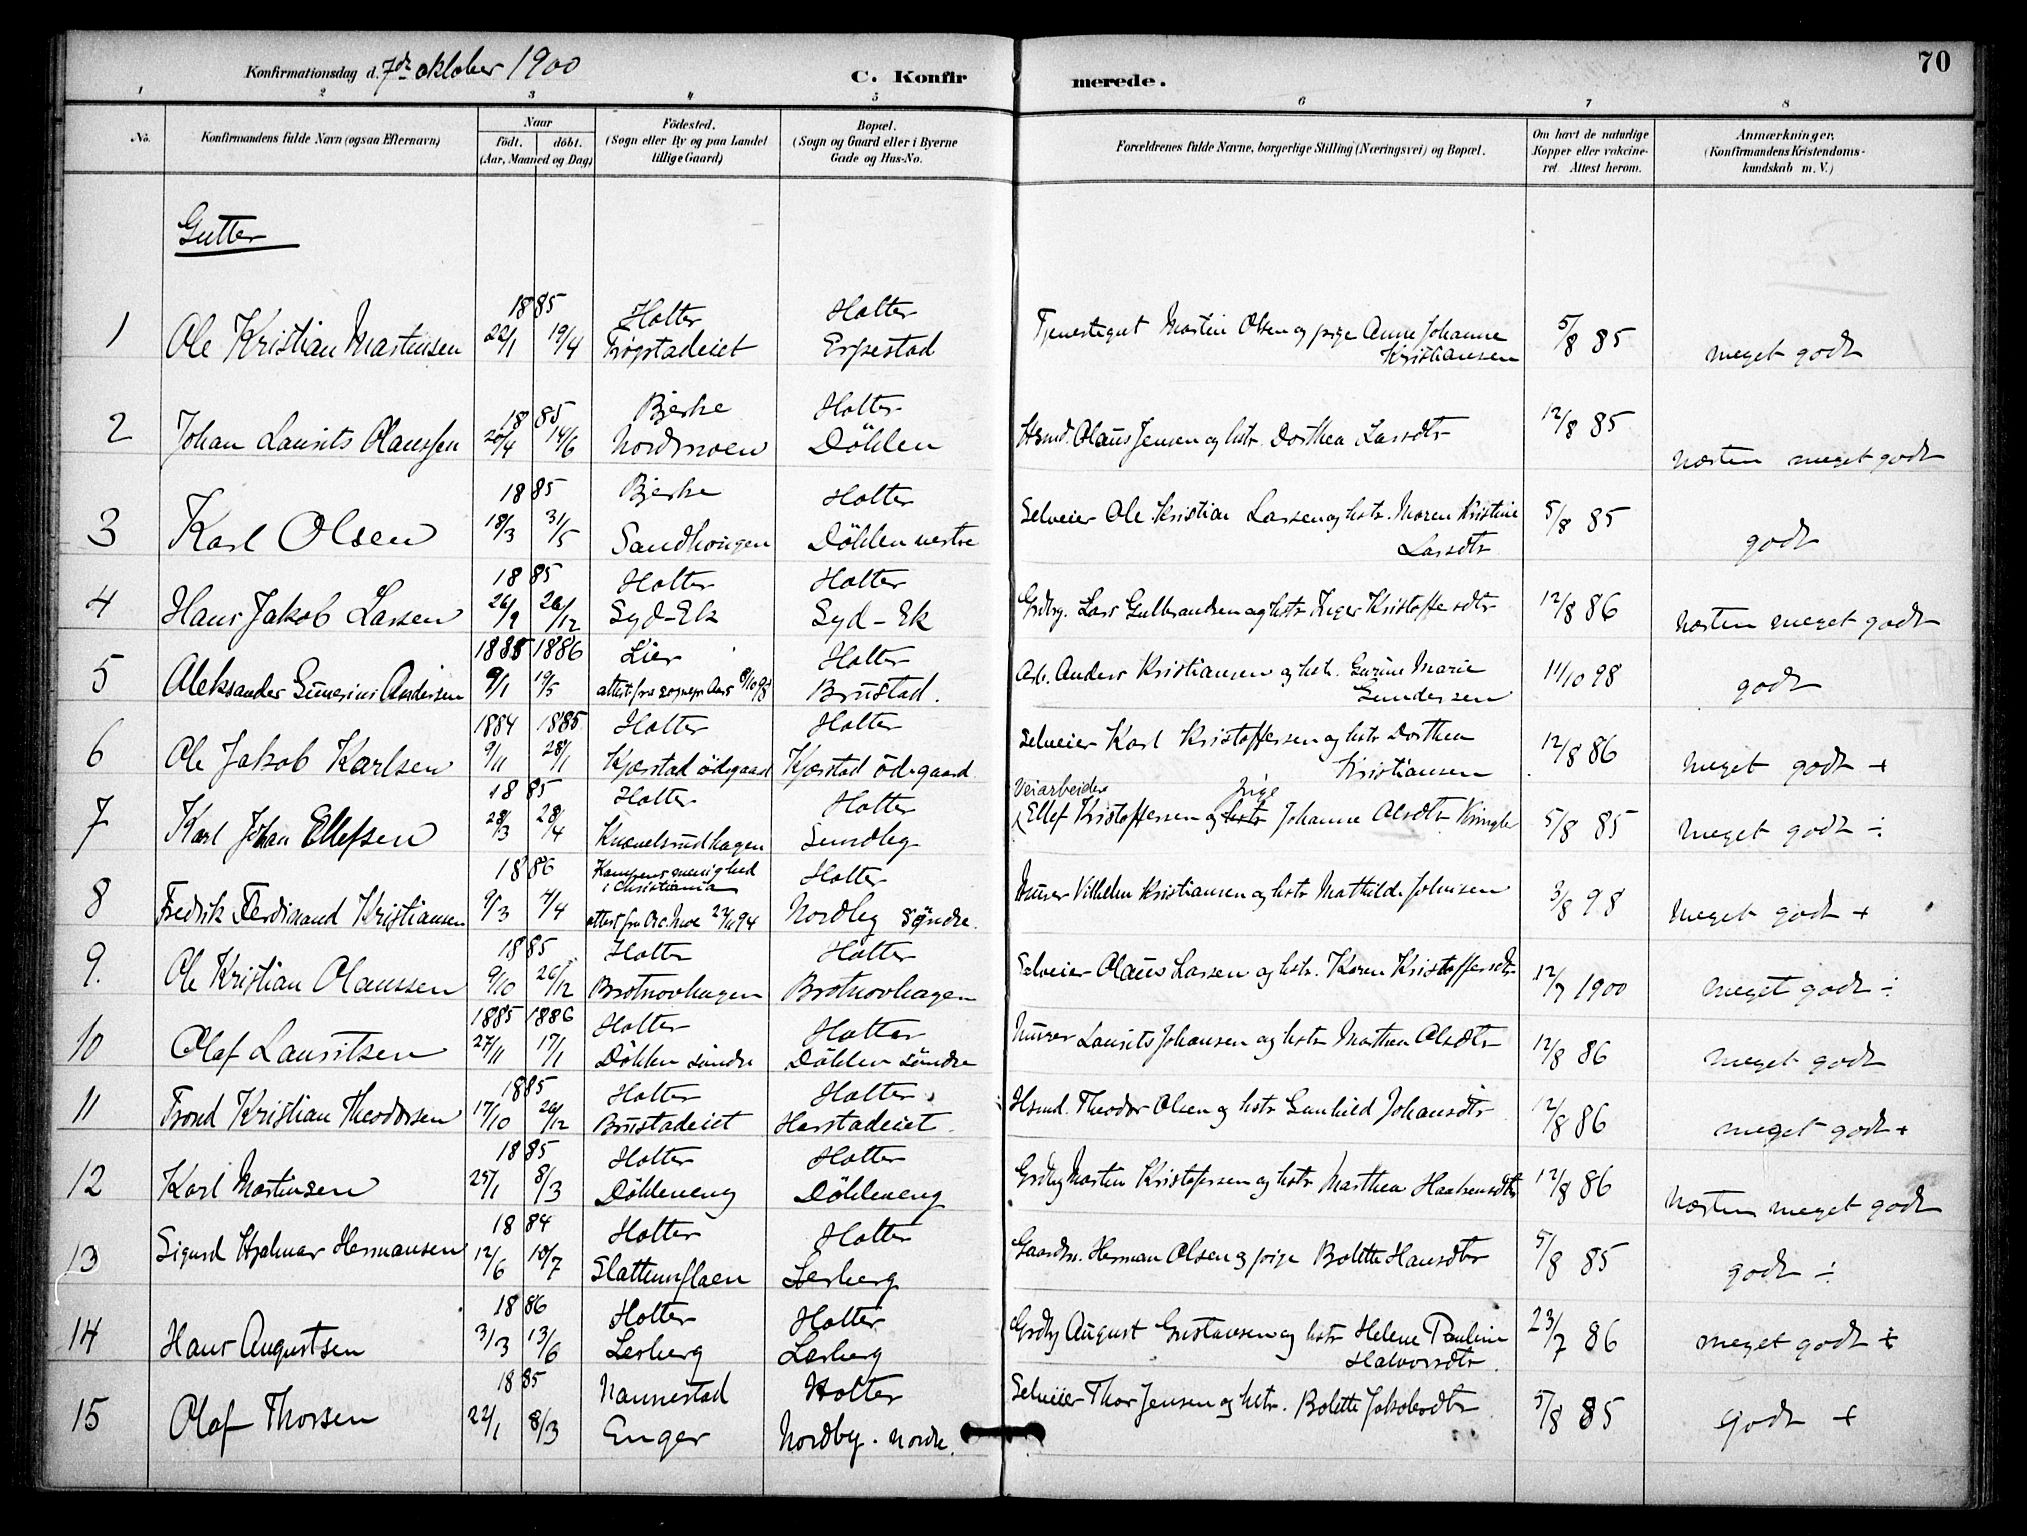 Konfirmationsdag d. 7de oktober 1900
C. Konfirmerede.
70
1 2 3 4 5 6 7 8
No.
Konfirmandens fulde Navn (ogsaa Efternavn)
Naar
födt. döbt.
(Aar, Maaned og Dag)
Födested.
(Sogn eller By og paa Landet
tillige Gaard)
Bopæl.
(Sogn og Gaard eller i Byerne
Gade og Hus-No.
Forældrenes fulde Navne, borgerlige Stilling (Næringsvei) og Bopæl.
Om havt de naturlige
Kopper eller vakcine-
ret. Attest herom.
Anmærkninger.
(Konfirmandens Kristendoms-
kundskab m. V.)
Gutter
1885 Holter Holter
1 Ole Kristian Martinsen 22/1 19/4 Erpestad Tjenestegut Martin Olsen og pige Anne Johanne
Kristiansen 5/8 85 meget godt
1885 Bjerke Holter
2 Johan Laurits Olaussen 20/4 14/6 Nordmoen Döhlen Hsmd. Olaus Jensen og hstr. Dorthea Larsdtr 12/8 85 næsten meget godt
1885 Bjerke Holter
3 Karl Olsen 18/3 31/5 Sandhougen Döhlen vestre Selveier Ole Kristian Larsen og hstr. Maren Kristine
Larsdtr 5/8 85 godt
1885 Holter Holter
4 Hans Jakob Larsen 26/9 26/12 Syd-Ek Syd-Ek Grdbr. Lars Gulbrandsen og hstr Inger Kristoffersdtr 12/8 86 næsten meget godt
1885 1886 Lier Holter
5 Aleksander Gunerius Andersen 9/1 19/5 attest fra sognepr Aars 8/10 98 Brustad. Arb. Anders Kristiansen og hstr. Gurine Marie
Gundersen 11/10 98 godt
1884 1885 Holter Holter
6 Ole Jakob Karlsen 9/11 28/1 Kjærstad ödegaard Kjærstad ödegaard Selveier Karl Kristoffersen og hstr Dorthea
Kristiansen 12/8 86 meget godt +
1885 Holter Holter
Veiarbeider pige
7 Karl Johan Ellefsen 28/3 28/4 Knævelsrudhagen Sundby Ellef Kristoffersen og hstr Johanne Olsdtr Kringle 5/8 85 meget godt ÷
1886 Kampens menighed
i Christiania Holter
8 Fredrik Ferdinand Kristiansen 9/3 4/4 attest fra 22/11 94 Nordby söndre. Murer Vilhelm Kristiansen og hstr Mathilde Johnsen 3/8 98 meget godt +
1885 Holter Holter
9. Ole Kristian Olaussen 9/10 26/12 Brotnovhagen Brotnovhagen Selveier Olaus Larsen og hstr. Karen Kristoffersdtr 12/7 1900 meget godt ÷
1885 1886 Holter Holter
10 Olaf Lauritsen 27/11 17/1 Döhlen söndre Döhlen söndre Murer Laurits Johansen og hstr Marthea Olsdtr 12/8 86 meget godt
1885 Holter Holter
11 Trond Kristian Theodorsen 17/10 26/12 Brustadeiet Harstadeiet. Hsmd. Theodor Olsen og hstr Gunhild Johansdtr 12/8 86 meget godt +
1885 Holter Holter
12 Karl Martinsen 25/1 8/3 Döhleneng Döhleneng Grdbr Martin Kristofersen og hstr Marthea Haakensdtr 12/8 86 næsten meget godt
1884 Holter Holter
13 Sigurd Hjalmar Hermansen 12/6 10/7 Slattumflaen Lerberg Gaardm. Herman Olsen og pige Bolette Hansdtr 5/8 85 godt ÷
1886 Holter Holter
14 Hans Augustsen 3/3 13/6 Lerberg Lerberg Grdbr August Gustavsen og hstr Helene Pauline
Halvorsdtr. 23/7 86 meget godt ÷
1885 Nannestad Holter
15 Olaf Thorsen 22/1 8/3 Enger Nordby nordre. Selveier Thor Jensen og hstr. Bolette Jakobsdtr 5/8 85 godt +